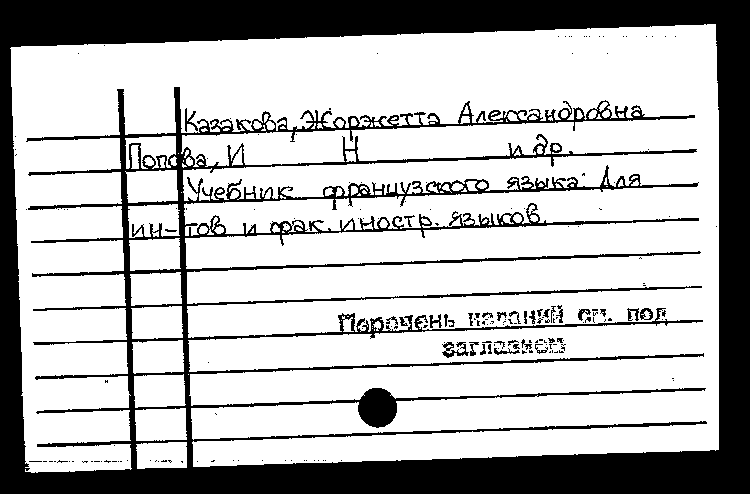 Казакова, Жоржетта Александровна
Попова, И Н и др.
Учебник французского языка: Для
ин-тов и фак. иностр. языков.
Перечень изданий см. под
заглавием